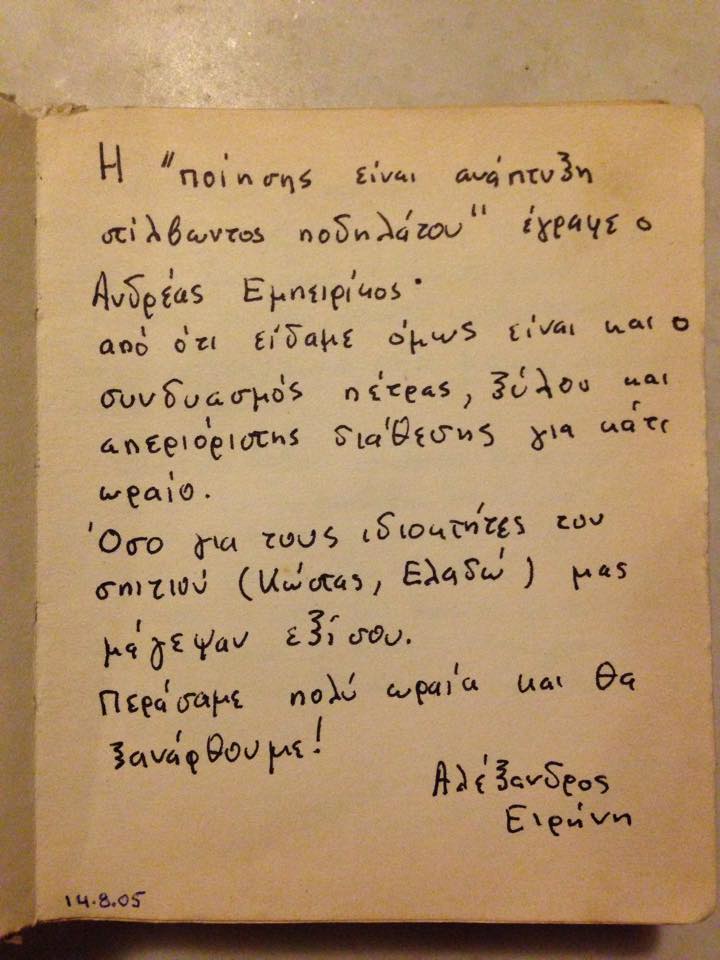 Η "ποίησης είναι ανάπτυξη
στίλβωντος ποδηλάτου" έγραψε ο
Ανδρέας Εμπειρίκος·
από ότι είδαμε όμως είναι και ο
συνδυασμός πέτρας, ξύλου και
απεριόριστης διάθεσης για κάτι
ωραίο.
Όσο για τους ιδιοκτήτες του
σπιτιού (Κώστας, Ελαδώ) μας
μάγεψαν εξίσου.
Περάσαμε πολύ ωραία και θα
ξανάρθουμε!
Αλέξανδρος
Ειρήνη
14.8.05